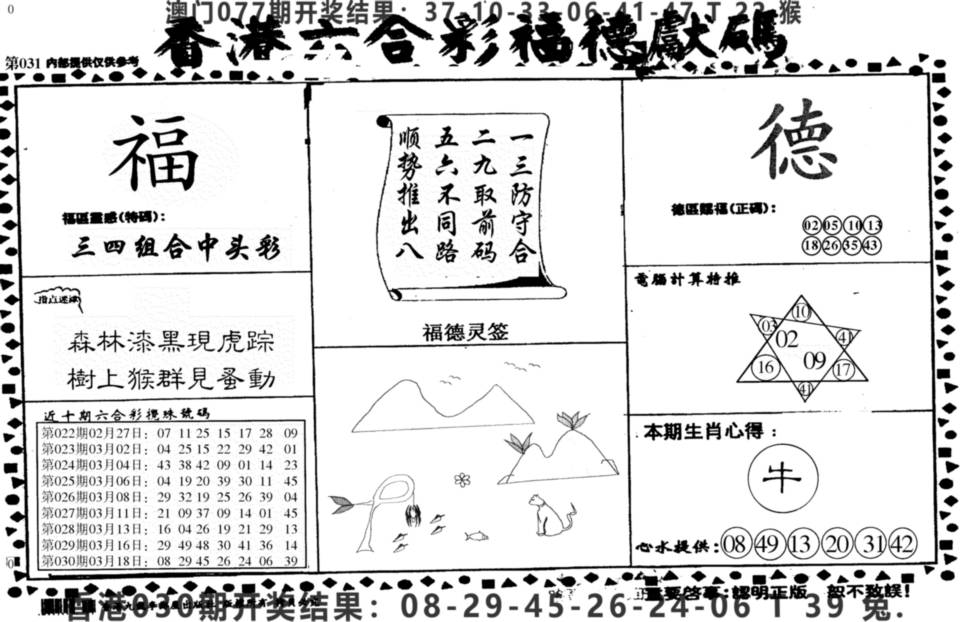 澳门077期开奖结果：37-10-33-06-41-47 T 23 猴
香港六合彩福德獻碼
第031 内部提供仅供参考
福
福區靈感(特碼)：
三四组合中头彩
指点迷津
森林漆黑現虎踪
樹上猴群見蚤動
近十期六合彩攪珠號碼
第022期02月27日：07 11 25 15 17 28 09
第023期03月02日：04 25 15 22 29 42 01
第024期03月04日：43 38 42 09 01 14 23
第025期03月06日：04 19 20 39 30 11 45
第026期03月08日：29 32 19 25 26 39 04
第027期03月11日：21 09 37 09 14 01 45
第028期03月13日：16 04 26 19 21 29 13
第029期03月16日：29 49 48 30 41 36 14
第030期03月18日：08 29 45 26 24 06 39
一三防守合
二九取前码
五六不同路
顺势推出八
福德灵签
德
德區賜福(正碼)：
02 05 10 13
18 26 35 43
電腦計算特推
10
03
41
02
09
16
17
41
本期生肖心得：
牛
心水提供：08 49 13 20 31 42
重要啓事：認明正版 恕不致誤！
香港030期开奖结果：08-29-45-26-24-06 T 39 兔.